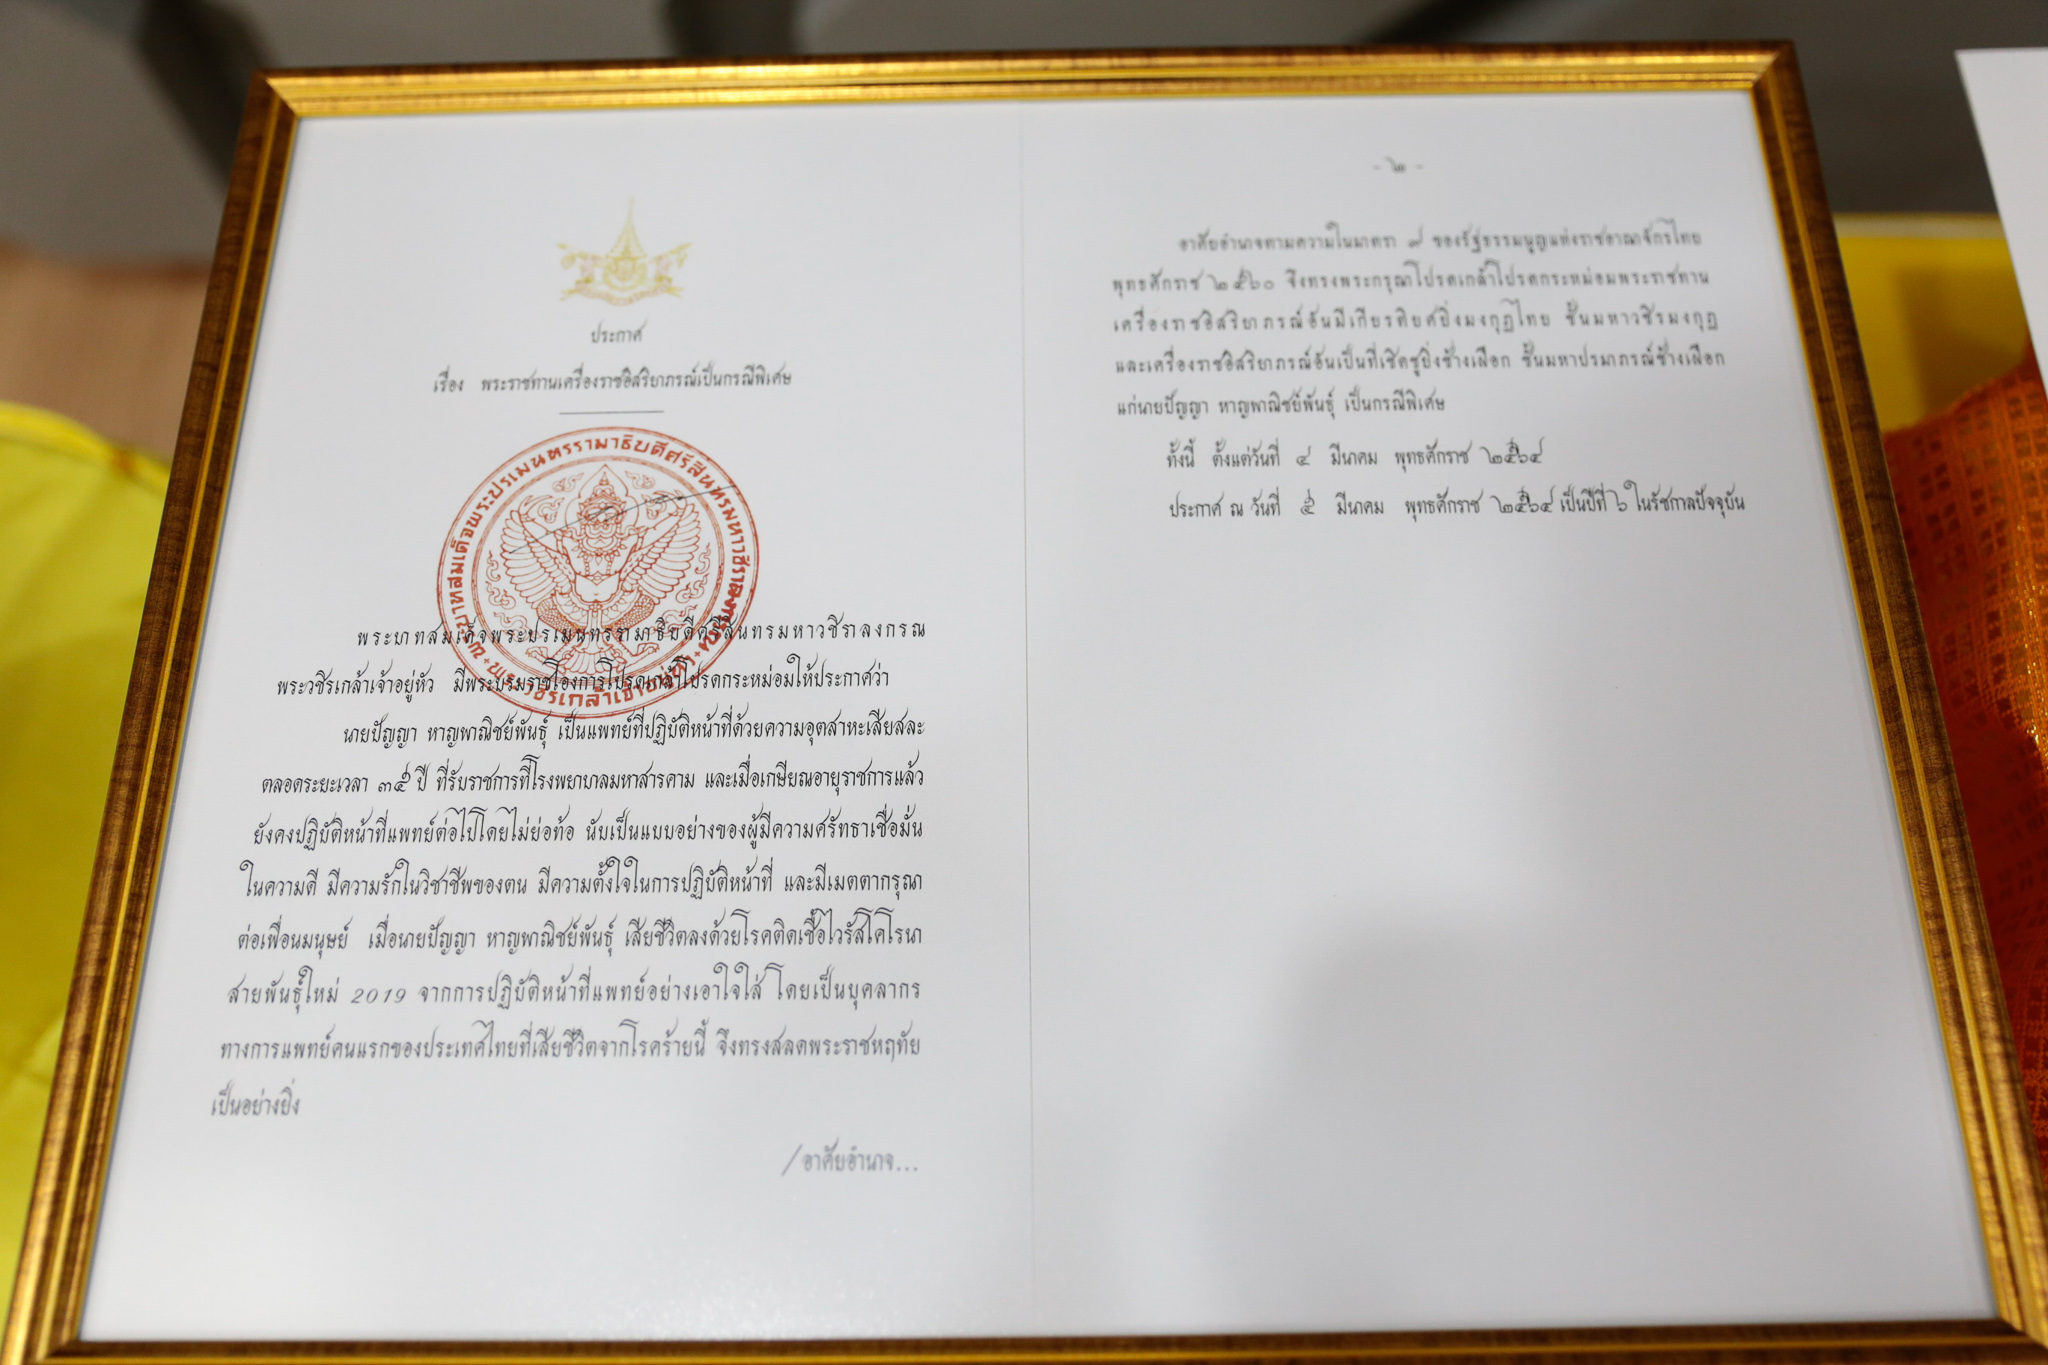 ประกาศ
เรื่อง พระราชทานเครื่องราชอิสริยาภรณ์เป็นกรณีพิเศษ
พระบาทสมเด็จพระปรเมนทรรามาธิบดีศรีสินทรมหาวชิราลงกรณ พระวชิรเกล้าเจ้าอยู่หัว
พระบาทสมเด็จพระปรเมนทรรามาธิบดีศรีสินทรมหาวชิราลงกรณ
พระวชิรเกล้าเจ้าอยู่หัว มีพระบรมราชโองการโปรดเกล้าโปรดกระหม่อมให้ประกาศว่า
นายปัญญา หาญพาณิชย์พันธุ์ เป็นแพทย์ที่ปฏิบัติหน้าที่ด้วยความอุตสาหะเสียสละ
ตลอดระยะเวลา ๓๕ ปี ที่รับราชการที่โรงพยาบาลมหาสารคาม และเมื่อเกษียณอายุราชการแล้ว
ยังคงปฏิบัติหน้าที่แพทย์ต่อไปโดยไม่ย่อท้อ นับเป็นแบบอย่างของผู้มีความศรัทธาเชื่อมั่น
ในความดี มีความรักในวิชาชีพของตน มีความตั้งใจในการปฏิบัติหน้าที่ และมีเมตตากรุณา
ต่อเพื่อนมนุษย์ เมื่อนายปัญญา หาญพาณิชย์พันธุ์ เสียชีวิตลงด้วยโรคติดเชื้อไวรัสโคโรนา
สายพันธุ์ใหม่ 2019 จากการปฏิบัติหน้าที่แพทย์อย่างเอาใจใส่ โดยเป็นบุคลากร
ทางการแพทย์คนแรกของประเทศไทยที่เสียชีวิตจากโรคร้ายนี้ จึงทรงสลดพระราชหฤทัย
เป็นอย่างยิ่ง
/อาศัยอำนาจ...
- ๒ -
อาศัยอำนาจตามความในมาตรา ๙ ของรัฐธรรมนูญแห่งราชอาณาจักรไทย
พุทธศักราช ๒๕๖๐ จึงทรงพระกรุณาโปรดเกล้าโปรดกระหม่อมพระราชทาน
เครื่องราชอิสริยาภรณ์อันมีเกียรติยศยิ่งมงกุฎไทย ชั้นมหาวชิรมงกุฎ
และเครื่องราชอิสริยาภรณ์อันเป็นที่เชิดชูยิ่งช้างเผือก ชั้นมหาปรมาภรณ์ช้างเผือก
แก่นายปัญญา หาญพาณิชย์พันธุ์ เป็นกรณีพิเศษ
ทั้งนี้ ตั้งแต่วันที่ ๔ มีนาคม พุทธศักราช ๒๕๖๔
ประกาศ ณ วันที่ ๕ มีนาคม พุทธศักราช ๒๕๖๔ เป็นปีที่ ๖ ในรัชกาลปัจจุบัน